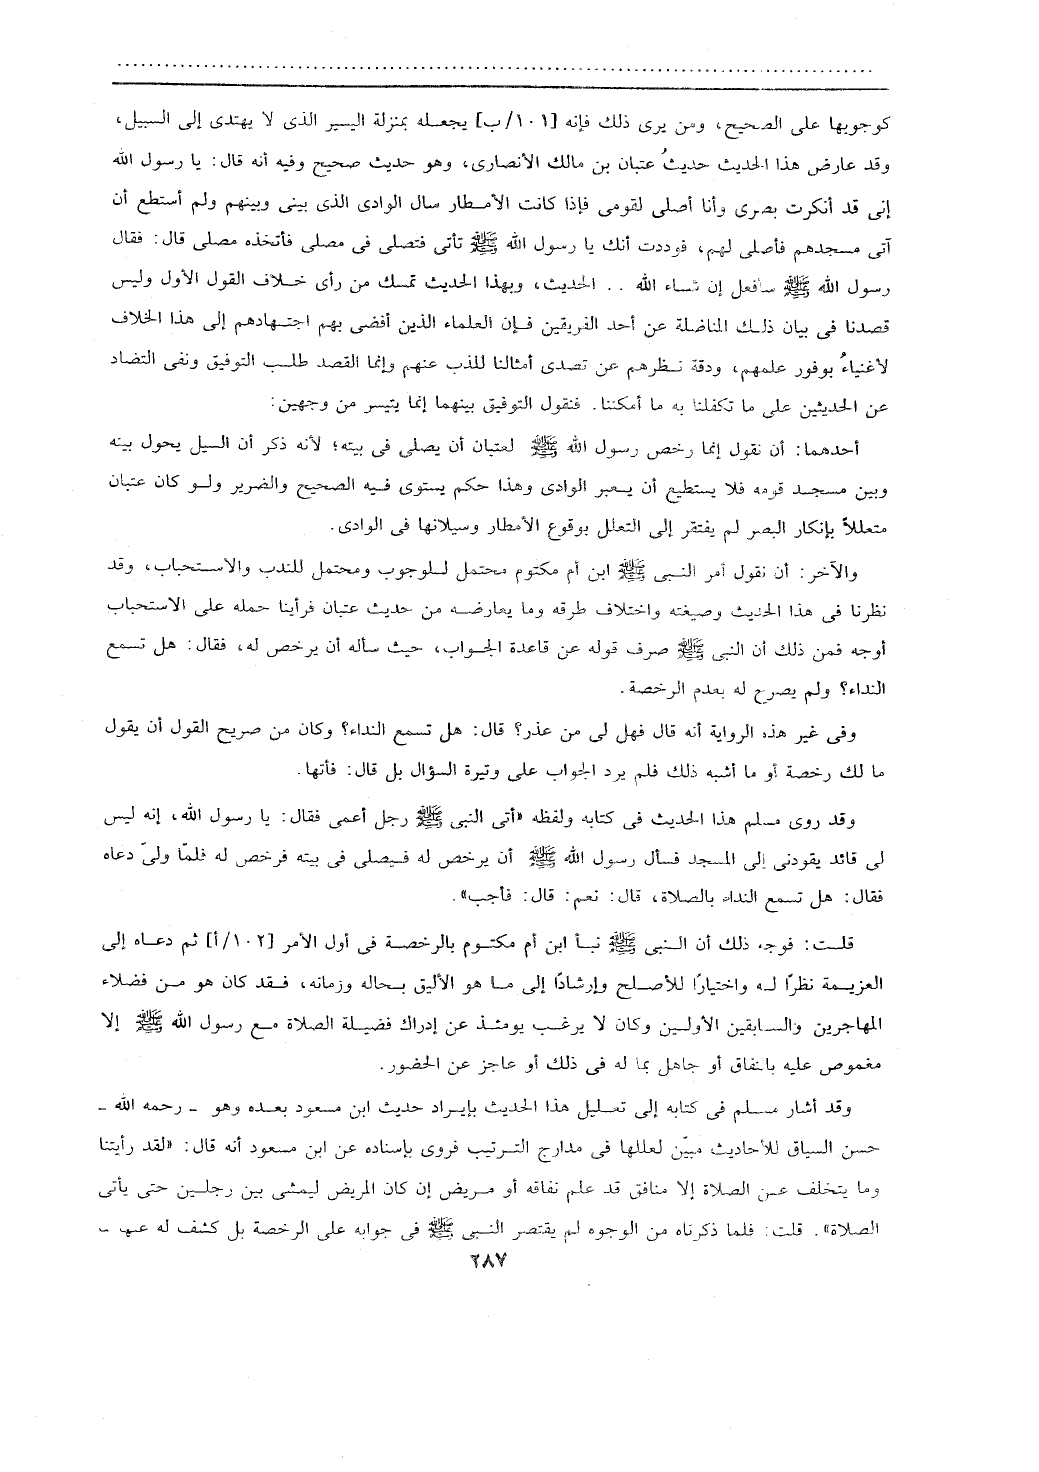 كوجوبها على الصحيح، ومن يرى ذلك فإنه [١٠١/ب] يجعله بمنزلة اليسير الذى لا يهتدى إلى السبيل،
وقد عارض هذا الحديث حديثُ عتبان بن مالك الأنصارى، وهو حديث صحيح وفيه أنه قال: يا رسول الله
إنى قد أنكرت بصرى وأنا أصلى لقومى فإذا كانت الأمطار سال الوادى الذى بينى وبينهم ولم أستطع أن
آتى مسجدهم فأصلى لهم، فوددت أنك يا رسول الله ﷺ تأتى فتصلى فى مصلى فأتخذه مصلى قال: فقال
رسول الله ﷺ سأفعل إن شاء الله .. الحديث، وبهذا الحديث تمسك من رأى خلاف القول الأول وليس
قصدنا فى بيان ذلك المناضلة عن أحد الفريقين فإن العلماء الذين أفضى بهم اجتهادهم إلى هذا الخلاف
لأغنياءُ بوفور علمهم، ودقة نظرهم عن تصدى أمثالنا للذب عنهم وإنما القصد طلب التوفيق ونفى التضاد
عن الحديثين على ما تكفلنا به ما أمكننا. فنقول التوفيق بينهما إنما يتيسر من وجهين:
أحدهما: أن نقول إنما رخص رسول الله ﷺ لعتبان أن يصلى فى بيته؛ لأنه ذكر أن السيل يحول بينه
وبين مسجد قومه فلا يستطيع أن يعبر الوادى وهذا حكم يستوى فيه الصحيح والضرير ولو كان عتبان
متعللاً بإنكار البصر لم يفتقر إلى التعلل بوقوع الأمطار وسيلانها فى الوادى.
والآخر: أن نقول أمر النبى ﷺ ابن أم مكتوم محتمل للوجوب ومحتمل للندب والاستحباب، وقد
نظرنا فى هذا الحديث وصيغته واختلاف طرقه وما يعارضه من حديث عتبان فرأينا حمله على الاستحباب
أوجه فمن ذلك أن النبى ﷺ صرف قوله عن قاعدة الجواب، حيث سأله أن يرخص له، فقال: هل تسمع
النداء؟ ولم يصرح له بعدم الرخصة.
وفى غير هذه الرواية أنه قال فهل لى من عذر؟ قال: هل تسمع النداء؟ وكان من صريح القول أن يقول
ما لك رخصة أو ما أشبه ذلك فلم يرد الجواب على وتيرة السؤال بل قال: فأتها.
وقد روى مسلم هذا الحديث فى كتابه ولفظه «أتى النبى ﷺ رجل أعمى فقال: يا رسول الله، إنه ليس
لى قائد يقودنى إلى المسجد فسأل رسول الله ﷺ أن يرخص له فيصلى فى بيته فرخص له فلمّا ولىّ دعاه
فقال: هل تسمع النداء بالصلاة، قال: نعم: قال: فأجب».
قلت: فوجه ذلك أن النبى ﷺ نبأ ابن أم مكتوم بالرخصة فى أول الأمر [١٠٢/أ] ثم دعاه إلى
العزيمة نظرًا له واختيارًا للأصلح وإرشادًا إلى ما هو الأليق بحاله وزمانه، فقد كان هو من فضلاء
المهاجرين والسابقين الأولين وكان لا يرغب يومئذ عن إدراك فضيلة الصلاة مع رسول الله ﷺ إلا
مغموص عليه بالنفاق أو جاهل بما له فى ذلك أو عاجز عن الحضور.
وقد أشار مسلم فى كتابه إلى تعليل هذا الحديث بإيراد حديث ابن مسعود بعده وهو - رحمه الله -
حسن السياق للأحاديث مبيّن لعللها فى مدارج الترتيب فروى بإسناده عن ابن مسعود أنه قال: «لقد رأيتنا
وما يتخلف عن الصلاة إلا منافق قد علم نفاقه أو مريض إن كان المريض ليمشى بين رجلين حتى يأتى
الصلاة». قلت: فلما ذكرناه من الوجوه لم يقتصر النبى ﷺ فى جوابه على الرخصة بل كشف له عن -
٢٨٧